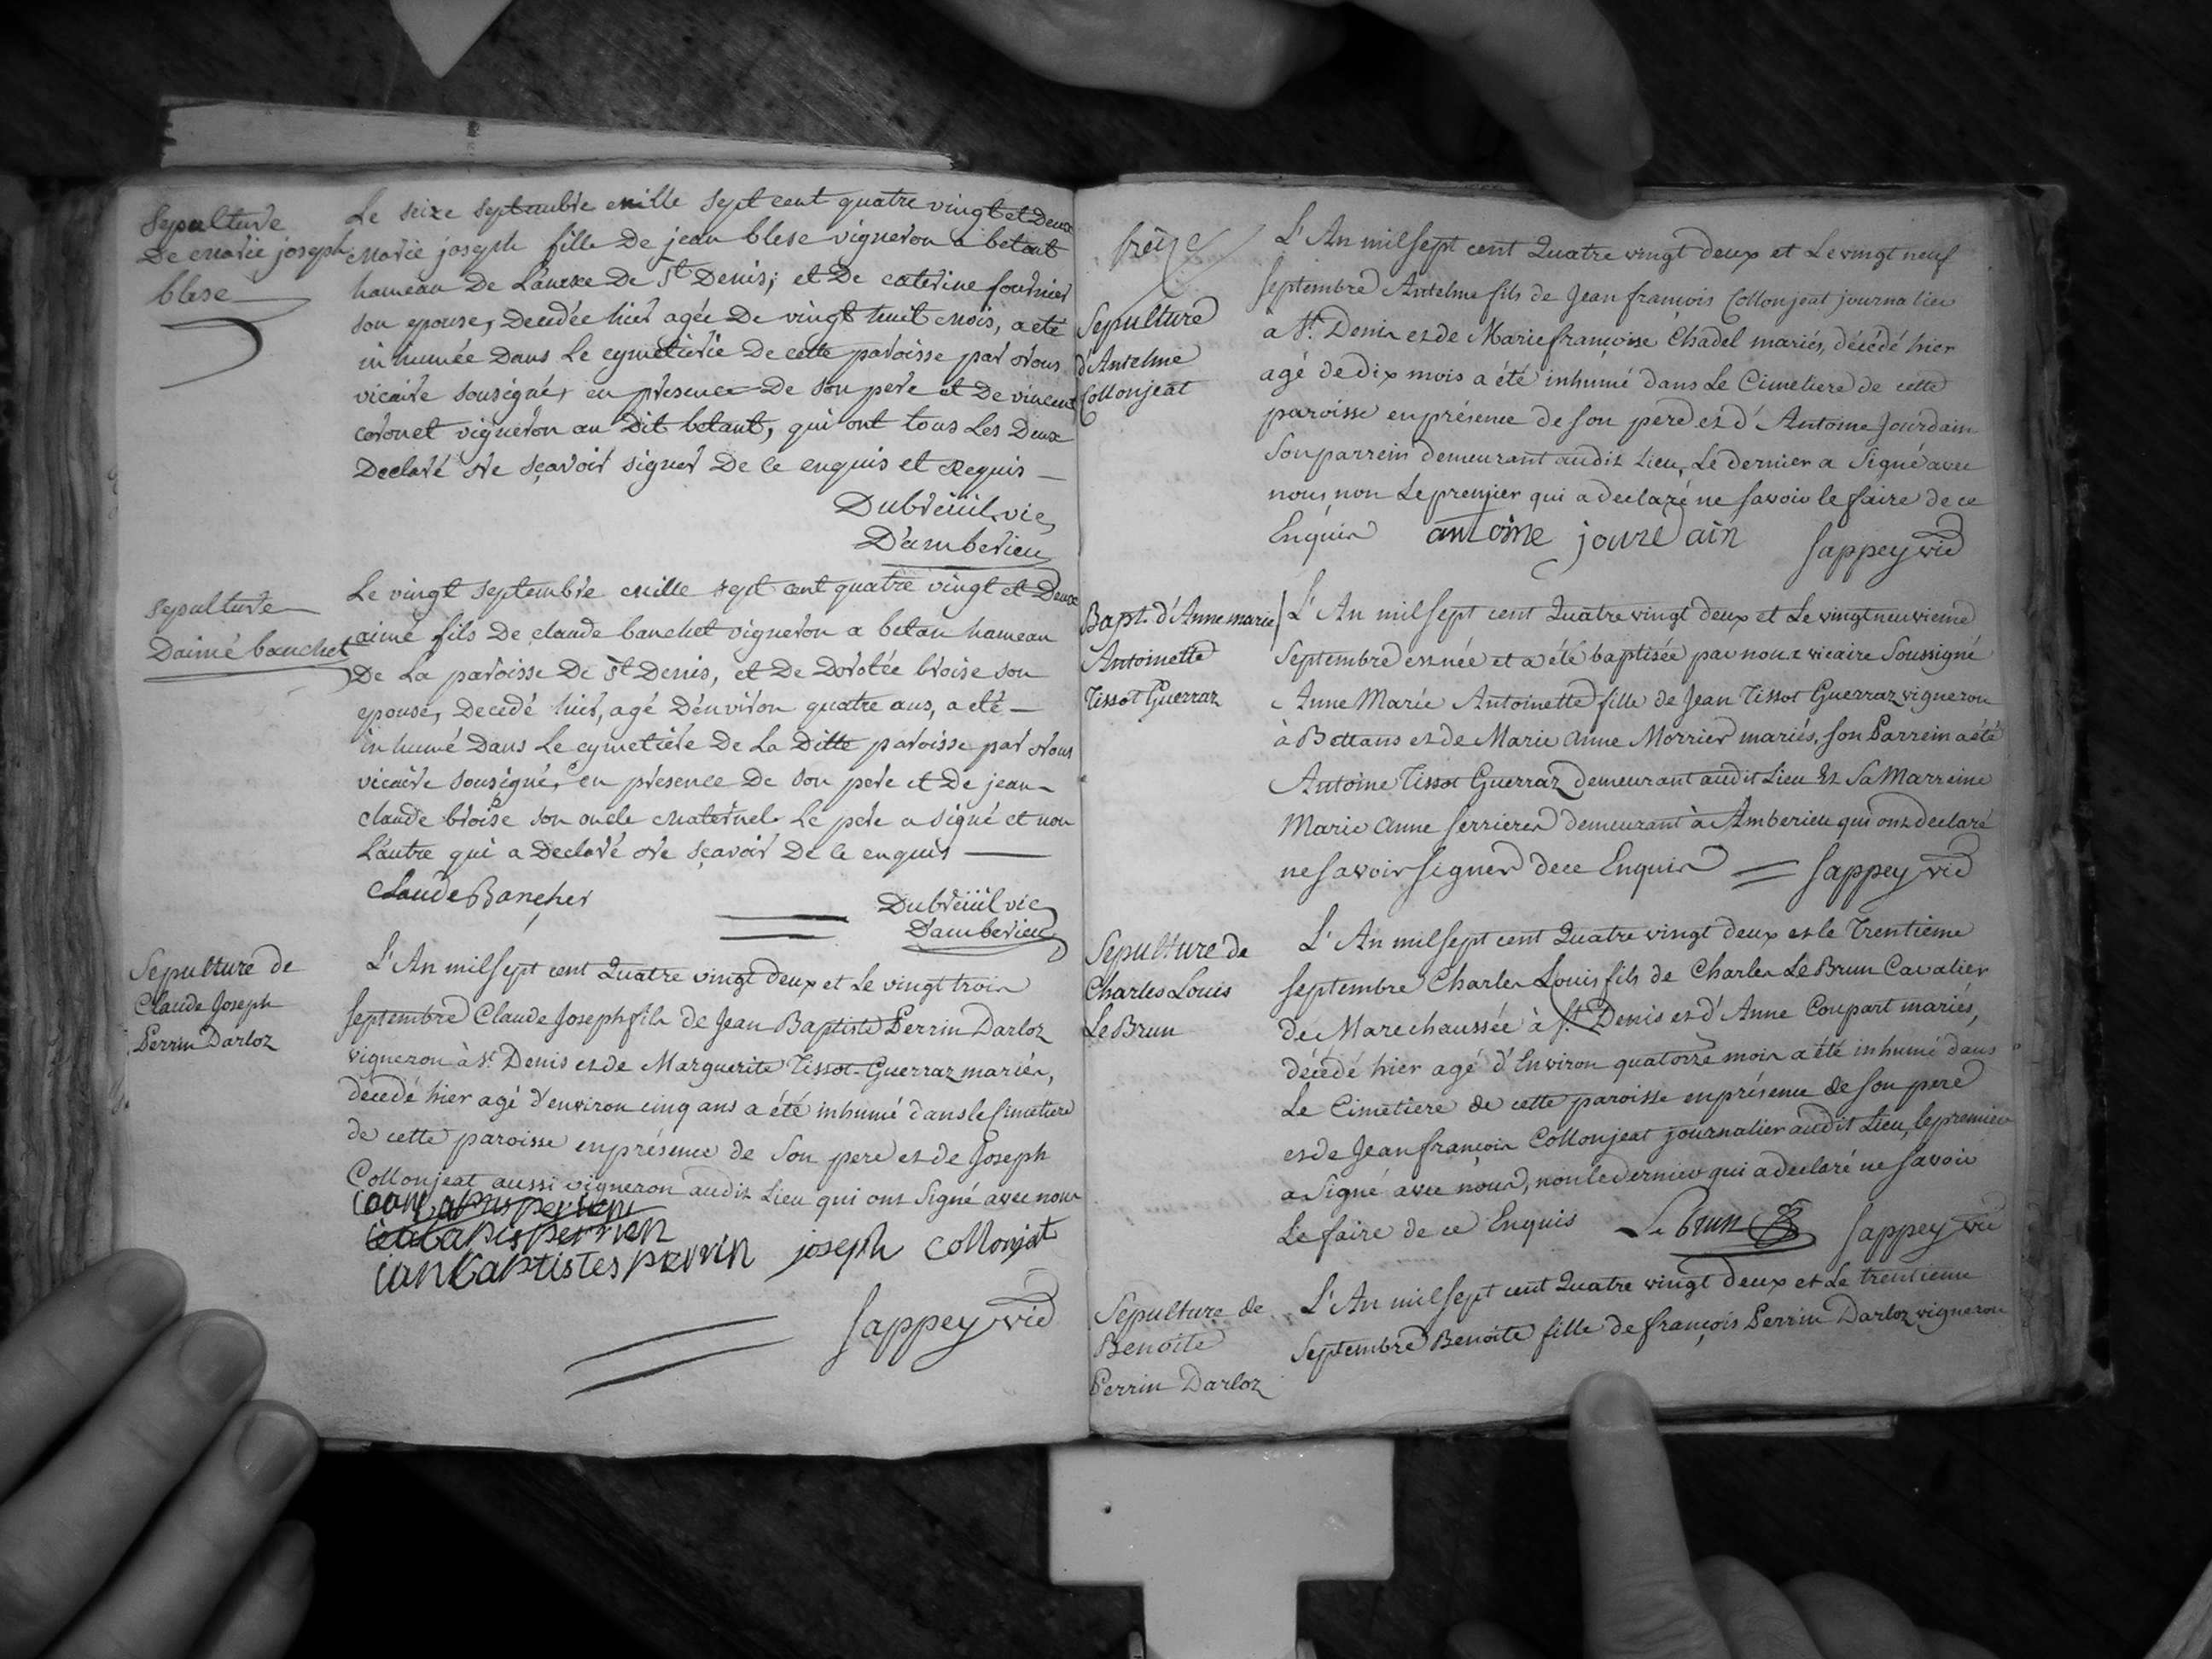 Sepulture
De marie joseph
blese
Le seize septembre mille sept cent quatre vingt et Deux
marie joseph fille De jean blese vigneron a betant
hameau De L'anexe De St Denis; et De caterine fournier
son epouse, Decedée hier agée De vingt huit mois, a eté
inhumée Dans Le cymetierie De cette paroisse par nous
vicaire sousigné, en presence De son pere et De vincent
coronet vigneron au Dit betant, qui ont tous Les Deux
Declaré ne sçavoir signer De ce enquis et Requis
Dubreüil vic
D'amberieu
sepulture
Daimé banchet
Le vingt septembre mille sept cent quatre vingt et Deux
aimé fils De claude banchet vigneron a betan hameau
De La paroisse De St Denis, et De Dorotée broise son
epouse, Decedé hier, agé D'environ quatre ans, a eté
inhumé Dans Le cymetiere De La Ditte paroisse par nous
vicaire sousigné, en presence De son pere et De jean
claude broise son oncle maternel. Le pere a signé et non
L'autre qui a Declaré ne sçavoir De ce enquis
Claude Bancher
Dubreüil vic
D'amberieu
Sepulture de
Claude Joseph
Perrin Darloz
L'An mil sept cent Quatre vingt deux et Le vingt trois
septembre Claude Joseph fils de Jean Baptiste Perrin Darloz
vigneron à St Denis et de Marguerite Tissot-Guerraz mariés,
décédé hier agé d'environ cinq ans a été inhumé dans le Cimetiere
de cette paroisse en présence de Son pere et de Joseph
Collonjeat aussi vigneron audit Lieu qui ont Signé avec nous
ianbaptistes perrin joseph collonjat
Sappey vic
treize
Sepulture
d'Antelme
Collonjeat
L'An mil sept cent Quatre vingt deux et Le vingt neuf
septembre Antelme fils de Jean françois Collonjeat journalier
à St. Denis et de Marie françoise Chadel mariés, décédé hier
agé de dix mois a été inhumé dans Le Cimetiere de cette
paroisse en présence de son pere et d'Antoine Jourdain
Son parrein demeurant audit Lieu, Le dernier a Signé avec
nous, non Le premier qui a declaré ne savoir le faire de ce
Enquis antoine jourdain Sappey vic
Bapt. d'Anne marie
Antoinette
Tissot Guerraz
L'An mil sept cent Quatre vingt deux et Le vingt neuvieme
Septembre est née et a été baptisée par nous vicaire Soussigné
Anne Marie Antoinette fille de Jean Tissot Guerraz vigneron
à Bettans et de Marie Anne Morrier mariés, son Parrein a été
Antoine Tissot Guerraz demeurant audit Lieu Et Sa Marreine
Marie Anne serrieres demeurant à Amberieu qui ont declaré
ne savoir signer de ce Enquis Sappey vic
Sepulture de
Charles Louis
Le Brun
L'An mil sept cent Quatre vingt deux et le Trentieme
septembre Charles Louis fils de Charles Le Brun Cavalier
de Marechaussée à St Denis et d'Anne Coupart mariés,
décédé hier agé d'Environ quatorze mois a été inhumé dans
Le Cimetiere de cette paroisse en présence de son pere
et de Jean françois Collonjeat journalier audit Lieu, le premier
a Signé avec nous, non le dernier qui a declaré ne savoir
Le faire de ce Enquis Le brun Sappey vic
Sepulture de
Benoite
Perrin Darloz
L'An mil sept cent Quatre vingt deux et Le trentieme
Septembre Benoite fille de françois Perrin Darloz vigneron